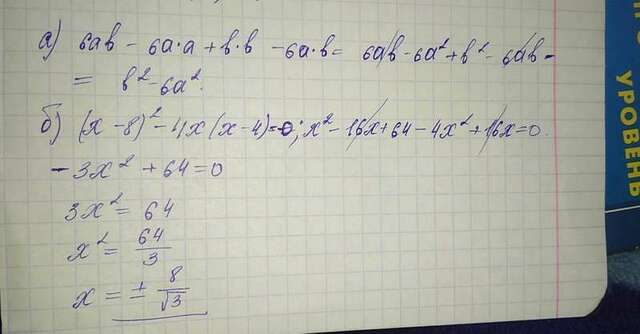 а) 6ав - 6а·а + в·в - 6а·в = 6ав - 6а² + в² - 6ав =
= в² - 6а².
б) (х - 8)² - 4х (х - 4) = 0; х² - 16х + 64 - 4х² + 16х = 0.
- 3х² + 64 = 0
3х² = 64
х² = 64/3
х = ± 8/√3
УРОВЕНЬ